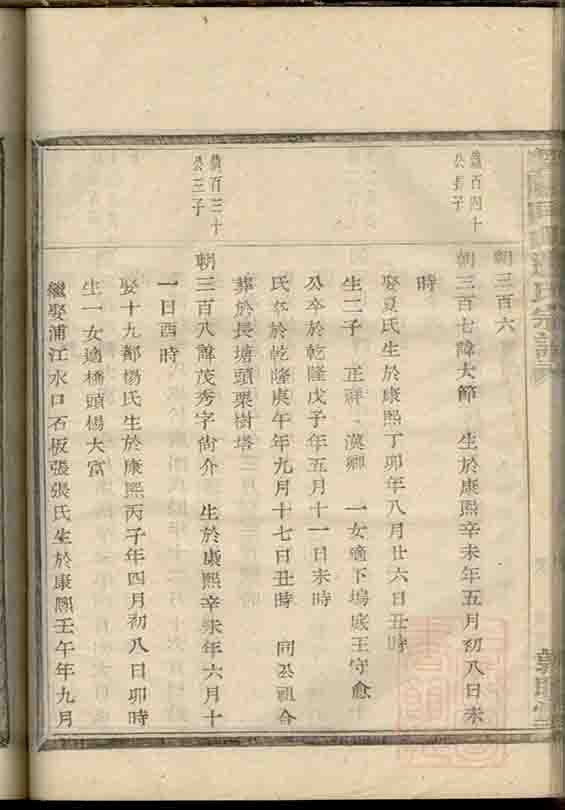 朝三百六
儀百四十
公長子
朝三百七諱大節 生於康熙辛未年五月初八日未
時
娶夏氏生於康熙丁卯年八月廿六日丑時
生二子 正祥 漢卿 一女適下塢底王守愈
公卒於乾隆戊子年五月十一日未時
氏卒於乾隆庚午年九月十七日丑時 同公祖合
葬於長塘頭栗樹塔
儀百三十
公三子
朝三百八諱茂秀字尙介 生於康熙辛未年六月十
一日酉時
娶十九都楊氏生於康熙丙子年四月初八日卯時
生一女適橋頭楊大富
繼娶浦江水口石板張張氏生於康熙壬午年九月
氏宗譜